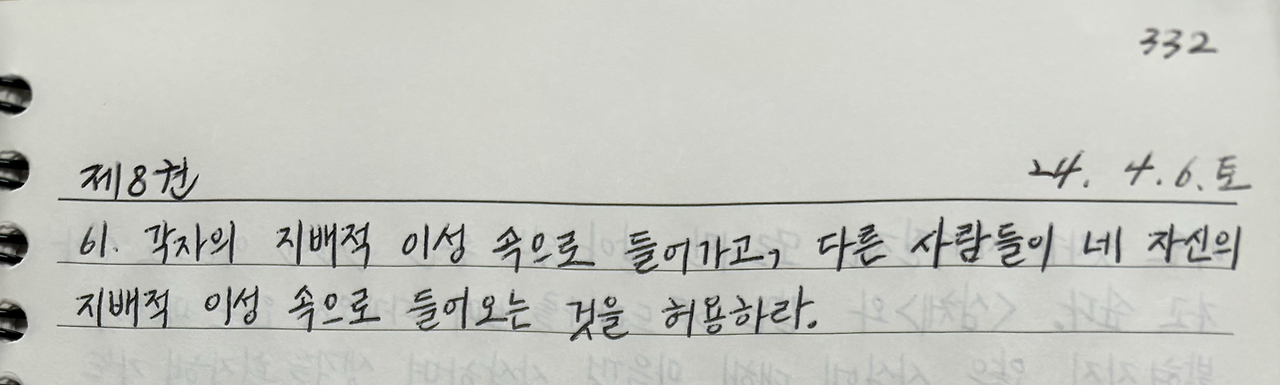 332
제8권 24. 4. 6. 토
61. 각자의 지배적 이성 속으로 들어가고, 다른 사람들이 네 자신의
지배적 이성 속으로 들어오는 것을 허용하라.